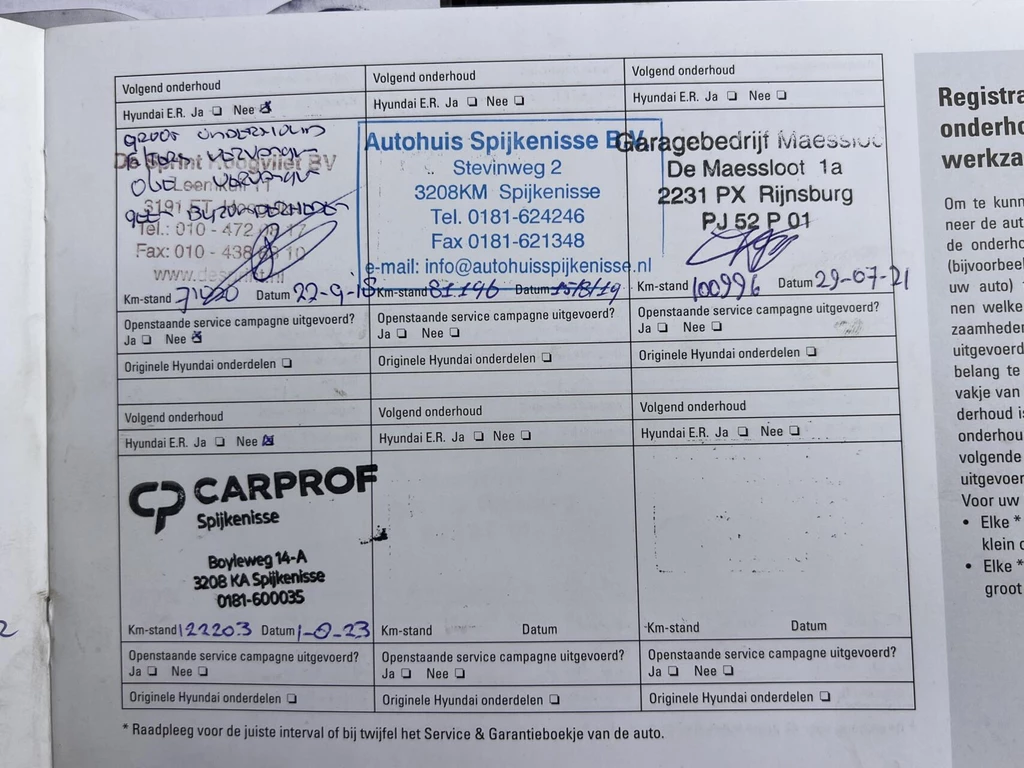 Volgend onderhoud
Hyundai E.R. Ja Nee
GROOT ONDERHOUD
De Sprint Hoogvliet BV
3191 ET
Tel.: 010 - 472
Fax: 010 - 438 10
Km-stand Datum 22-9-18
Openstaande service campagne uitgevoerd?
Ja Nee
Originele Hyundai onderdelen
Volgend onderhoud
Hyundai E.R. Ja Nee
Autohuis Spijkenisse B.V.
Stevinweg 2
3208KM Spijkenisse
Tel. 0181-624246
Fax 0181-621348
e-mail: info@autohuisspijkenisse.nl
Km-stand 81146 Datum 15/8/19
Openstaande service campagne uitgevoerd?
Ja Nee
Originele Hyundai onderdelen
Volgend onderhoud
Hyundai E.R. Ja Nee
Garagebedrijf Maessloot
De Maessloot 1a
2231 PX Rijnsburg
PJ 52 P 01
Km-stand 100996 Datum 29-07-21
Openstaande service campagne uitgevoerd?
Ja Nee
Originele Hyundai onderdelen
Volgend onderhoud
Hyundai E.R. Ja Nee
CP CARPROF
Spijkenisse
Boyleweg 14-A
3208 KA Spijkenisse
0181-600035
Km-stand 122203 Datum
Openstaande service campagne uitgevoerd?
Ja Nee
Originele Hyundai onderdelen
Volgend onderhoud
Hyundai E.R. Ja Nee
Km-stand Datum
Openstaande service campagne uitgevoerd?
Ja Nee
Originele Hyundai onderdelen
Volgend onderhoud
Hyundai E.R. Ja Nee
Km-stand Datum
Openstaande service campagne uitgevoerd?
Ja Nee
Originele Hyundai onderdelen
* Raadpleeg voor de juiste interval of bij twijfel het Service & Garantieboekje van de auto.
Registra
onderho
werkza
Om te kunn
neer de aut
de onderho
(bijvoorbeel
uw auto)
nen welke
zaamheden
uitgevoerd
belang te
vakje van
derhoud is
onderhou
volgende
uitgevoer
Voor uw
• Elke *
klein o
• Elke *
groot